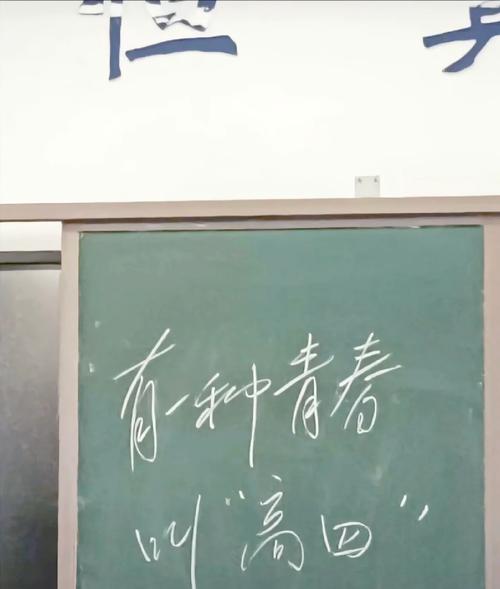 恒
有一种青春
叫“高四”